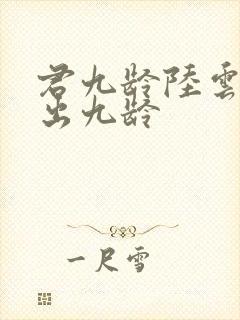 君九龄陸雲
出九龄
一尺雪